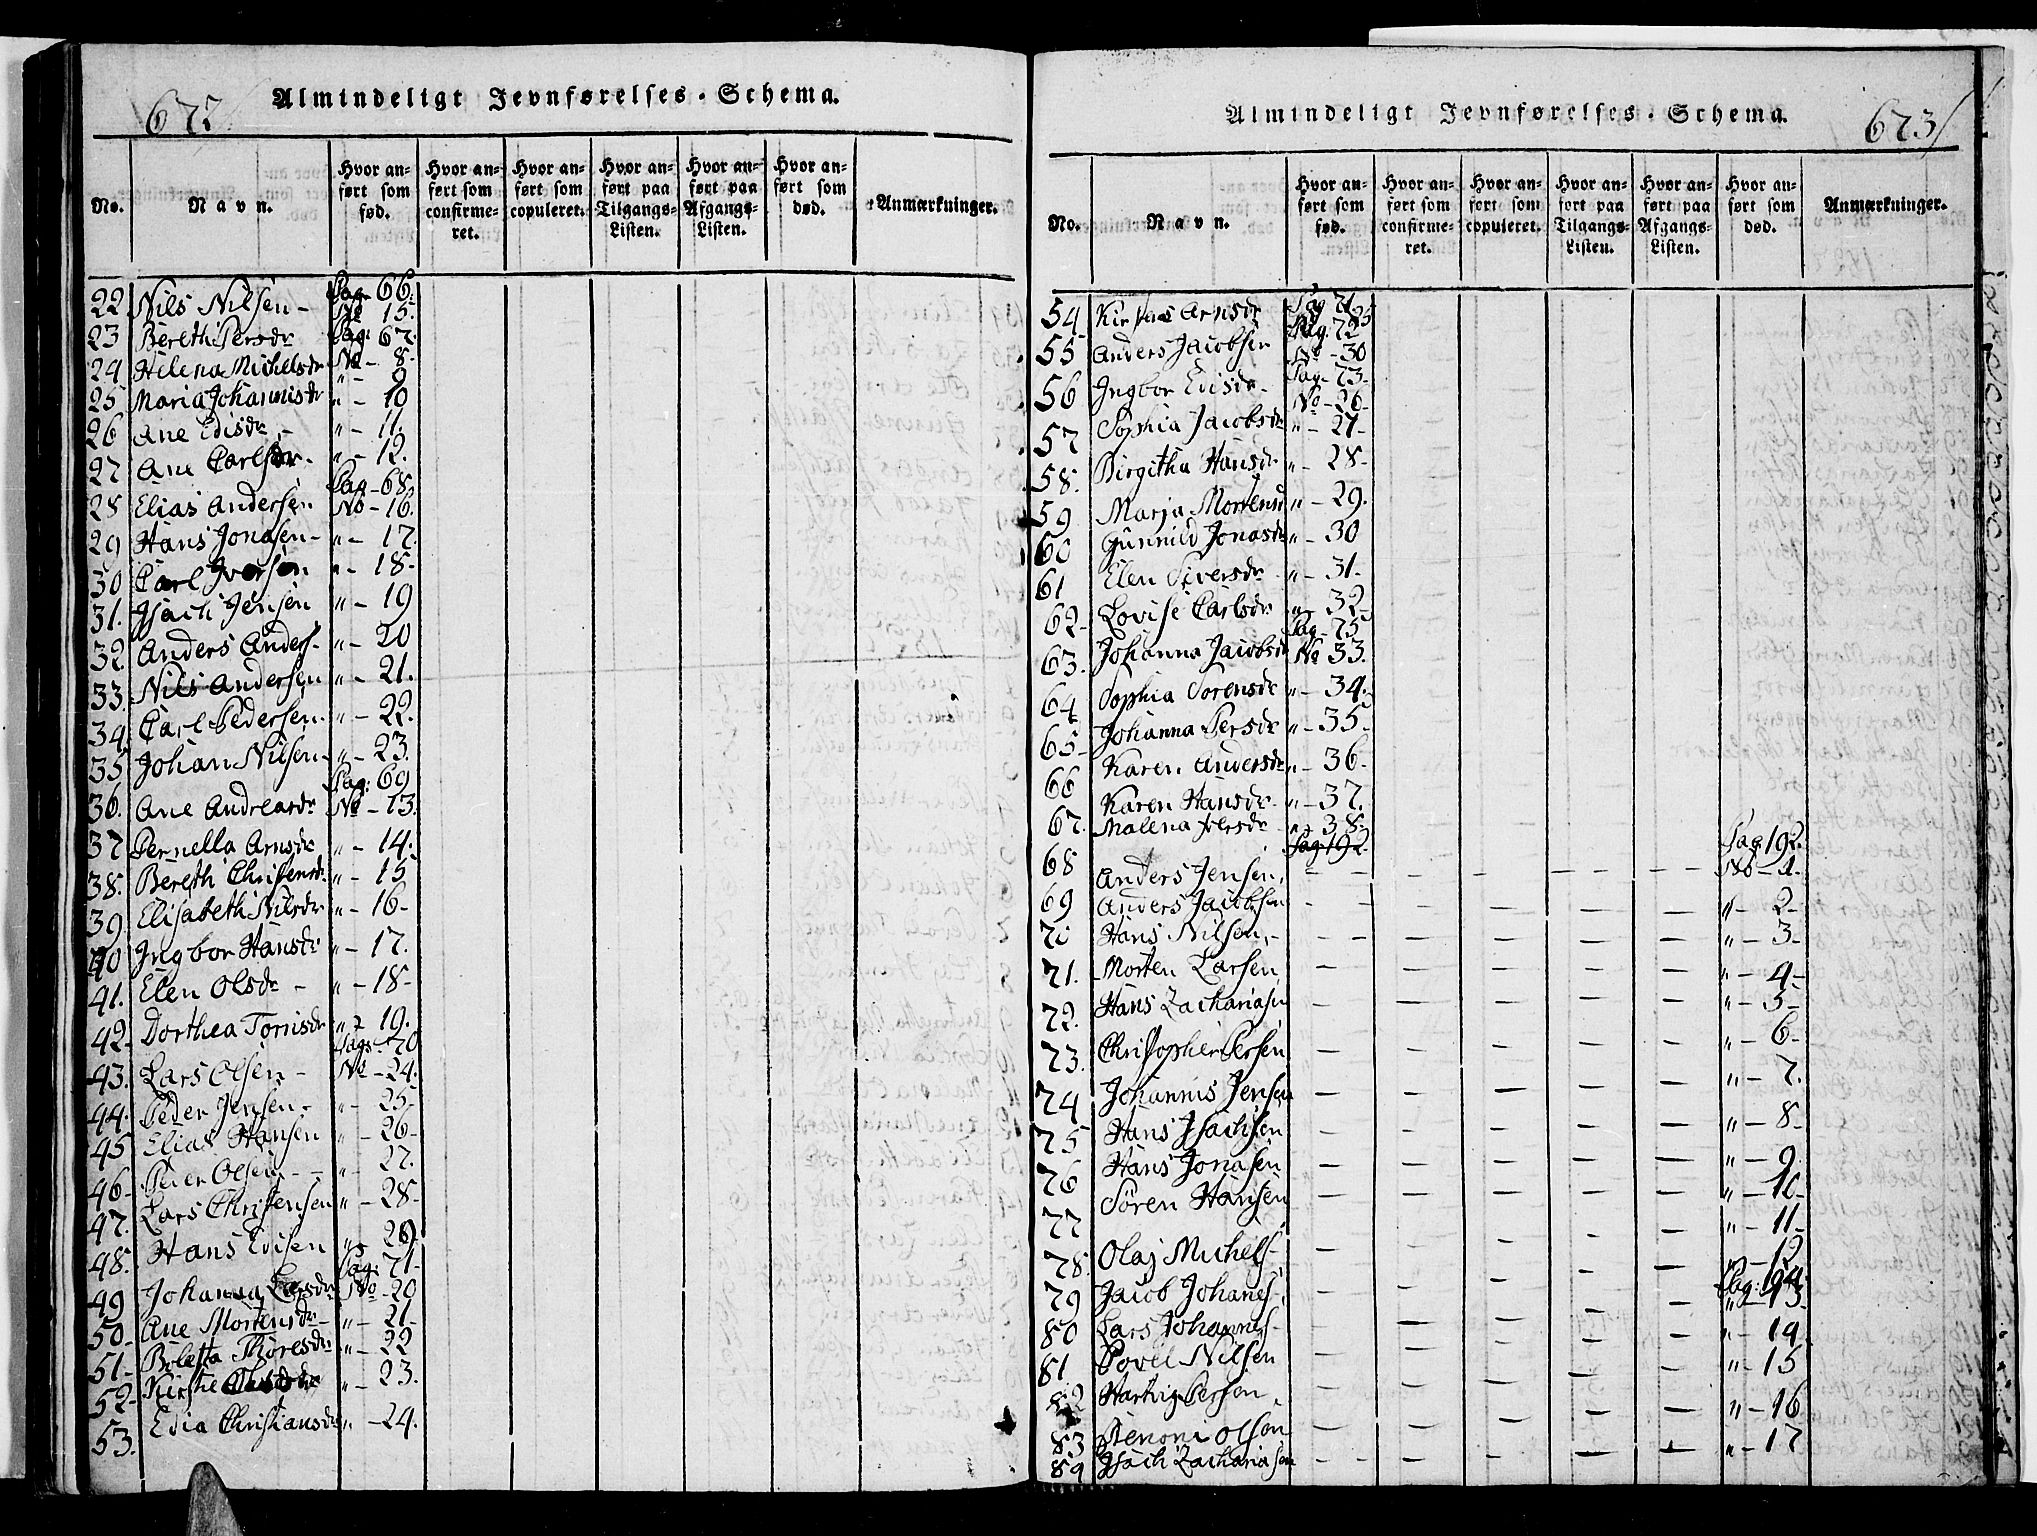 672
Almindeligt Jevnførelses-Schema.
No. Navn. Hvor anført som fød. Hvor anført som confirmeret. Hvor anført som copuleret. Hvor anført paa Tilgangs-Listen. Hvor anført paa Afgangs-Listen. Hvor anført som død. Anmærkninger.
Pag. 66.
22 Nils Nilsen - No 15.
Pag. 67.
23 Bereth Persdr No - 8.
24 Helena Michelsdr " - 9
25 Maria Johannisdr " - 10
26 Ane Edisdr - " - 11.
27 Ane Carlsdr - " - 12.
Pag - 68.
28 Elias Andersen No - 16.
29 Hans Jonasen - " - 17.
30 Carl Iversen " - 18.
31. Isach Jensen " - 19
32. Anders Anders. " - 20
33. Nils Andersen " - 21.
34. Carl Pedersen. " - 22.
35. Johan Nilsen - " - 23.
Pag. 69
36. Ane Andreasdr No - 13.
37 Pernella Arnsdr " - 14.
38. Bereth Christensdr " - 15
39. Elisabeth Nilsdr " - 16 -
40 Ingbor Hansdr " - 17.
41. Elen Olsdr - " - 18 -
42. Dorthea Tornisdr " - 19.
Pag - 70
43. Lars Olsen - No - 24.
44. Peder Jensen - " - 25 -
45 Elias Hansen " - 26 -
46 - Peder Olsen - " - 27.
47. Lars Christensen " - 28 -
48. Hans Edisen " - 29.
Pag. 71 -
49 Johanna Larsdr No - 20
50 - Ane Mortensdr - " - 21 -
51 - Boletta Thoresdr " - 22
52 - Kirstie " - 23.
53. Edia Christiansdr " - 24.
673
Almindeligt Jevnførelses-Schema.
No. Navn. Hvor anført som fød. Hvor anført som confirmeret. Hvor anført som copuleret. Hvor anført paa Tilgangs-Listen. Hvor anført paa Afgangs-Listen. Hvor anført som død. Anmærkninger.
Pag 71
54 Arnsdr 25
Pag. 72
55 Anders Jacobsen No - 30
Pag - 73 -
56 Ingbor Edisdr - No - 26 -
57 Sophia Jacobsdr " - 27 -
58. Birgitha Hansdr " - 28 -
59 Marja Mortensd " - 29.
60 Gunnild Jonasdr " - 30
61 Elen Siversdr " - 31 -
62 - Lovise Carlsdr " - 32 -
Pag - 75
63. Johanna Jacobsd No 33.
64 Sophia Sorensdr " - 34.
65 - Johanna Persdr " - 35 -
66 Karen Andersdr " - 36 -
67. Karen Hansdr - " - 37.
68 Malena Iversdr - " - 38 -
Pag 192 Pag. 192.
69 Anders Jensen, No - 1.
70 Anders Jacobsen " - 2 -
71. Hans Nilsen, - " - 3 -
72. Morten Larsen " - 4 -
73. Hans Zachariasen " - 5 -
74 Christopher Persen " - 6 -
75 Johannis Jensen " - 7.
76 Hans Isachsen " - 8 -
77 Hans Jonasen " - 9 -
78. Sören Hansen " - 10 -
79 Olaj Michels - " - 11 -
80 Jacob Johanes - " - 12
Pag. 194
81 Lars Johannes - " - 13 -
82 Povel Nilsen " - 14
83 Hartvig Persen " - 15
84 Benoni Olsen " - 16
Isach Zachariasen " - 17